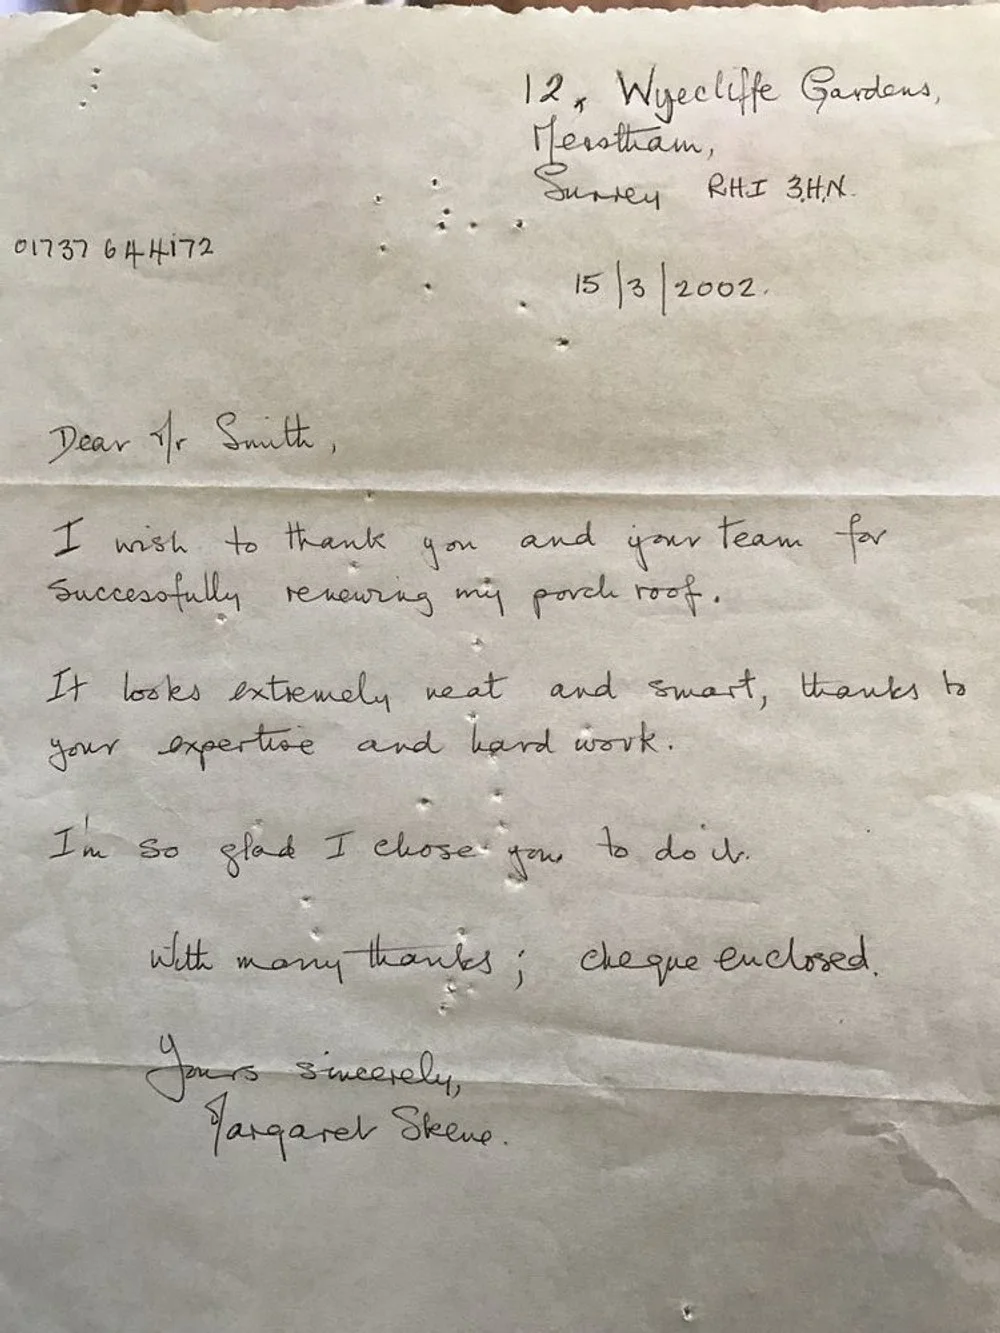 12, Wyecliffe Gardens,
Merstham,
Surrey RHI 3HN.
01737 644172
15/3/2002.
Dear Mr Smith,
I wish to thank you and your team for
successfully renewing my porch roof.
It looks extremely neat and smart, thanks to
your expertise and hard work.
I'm so glad I chose you to do it.
With many thanks; cheque enclosed.
Yours sincerely,
Margaret Skene.